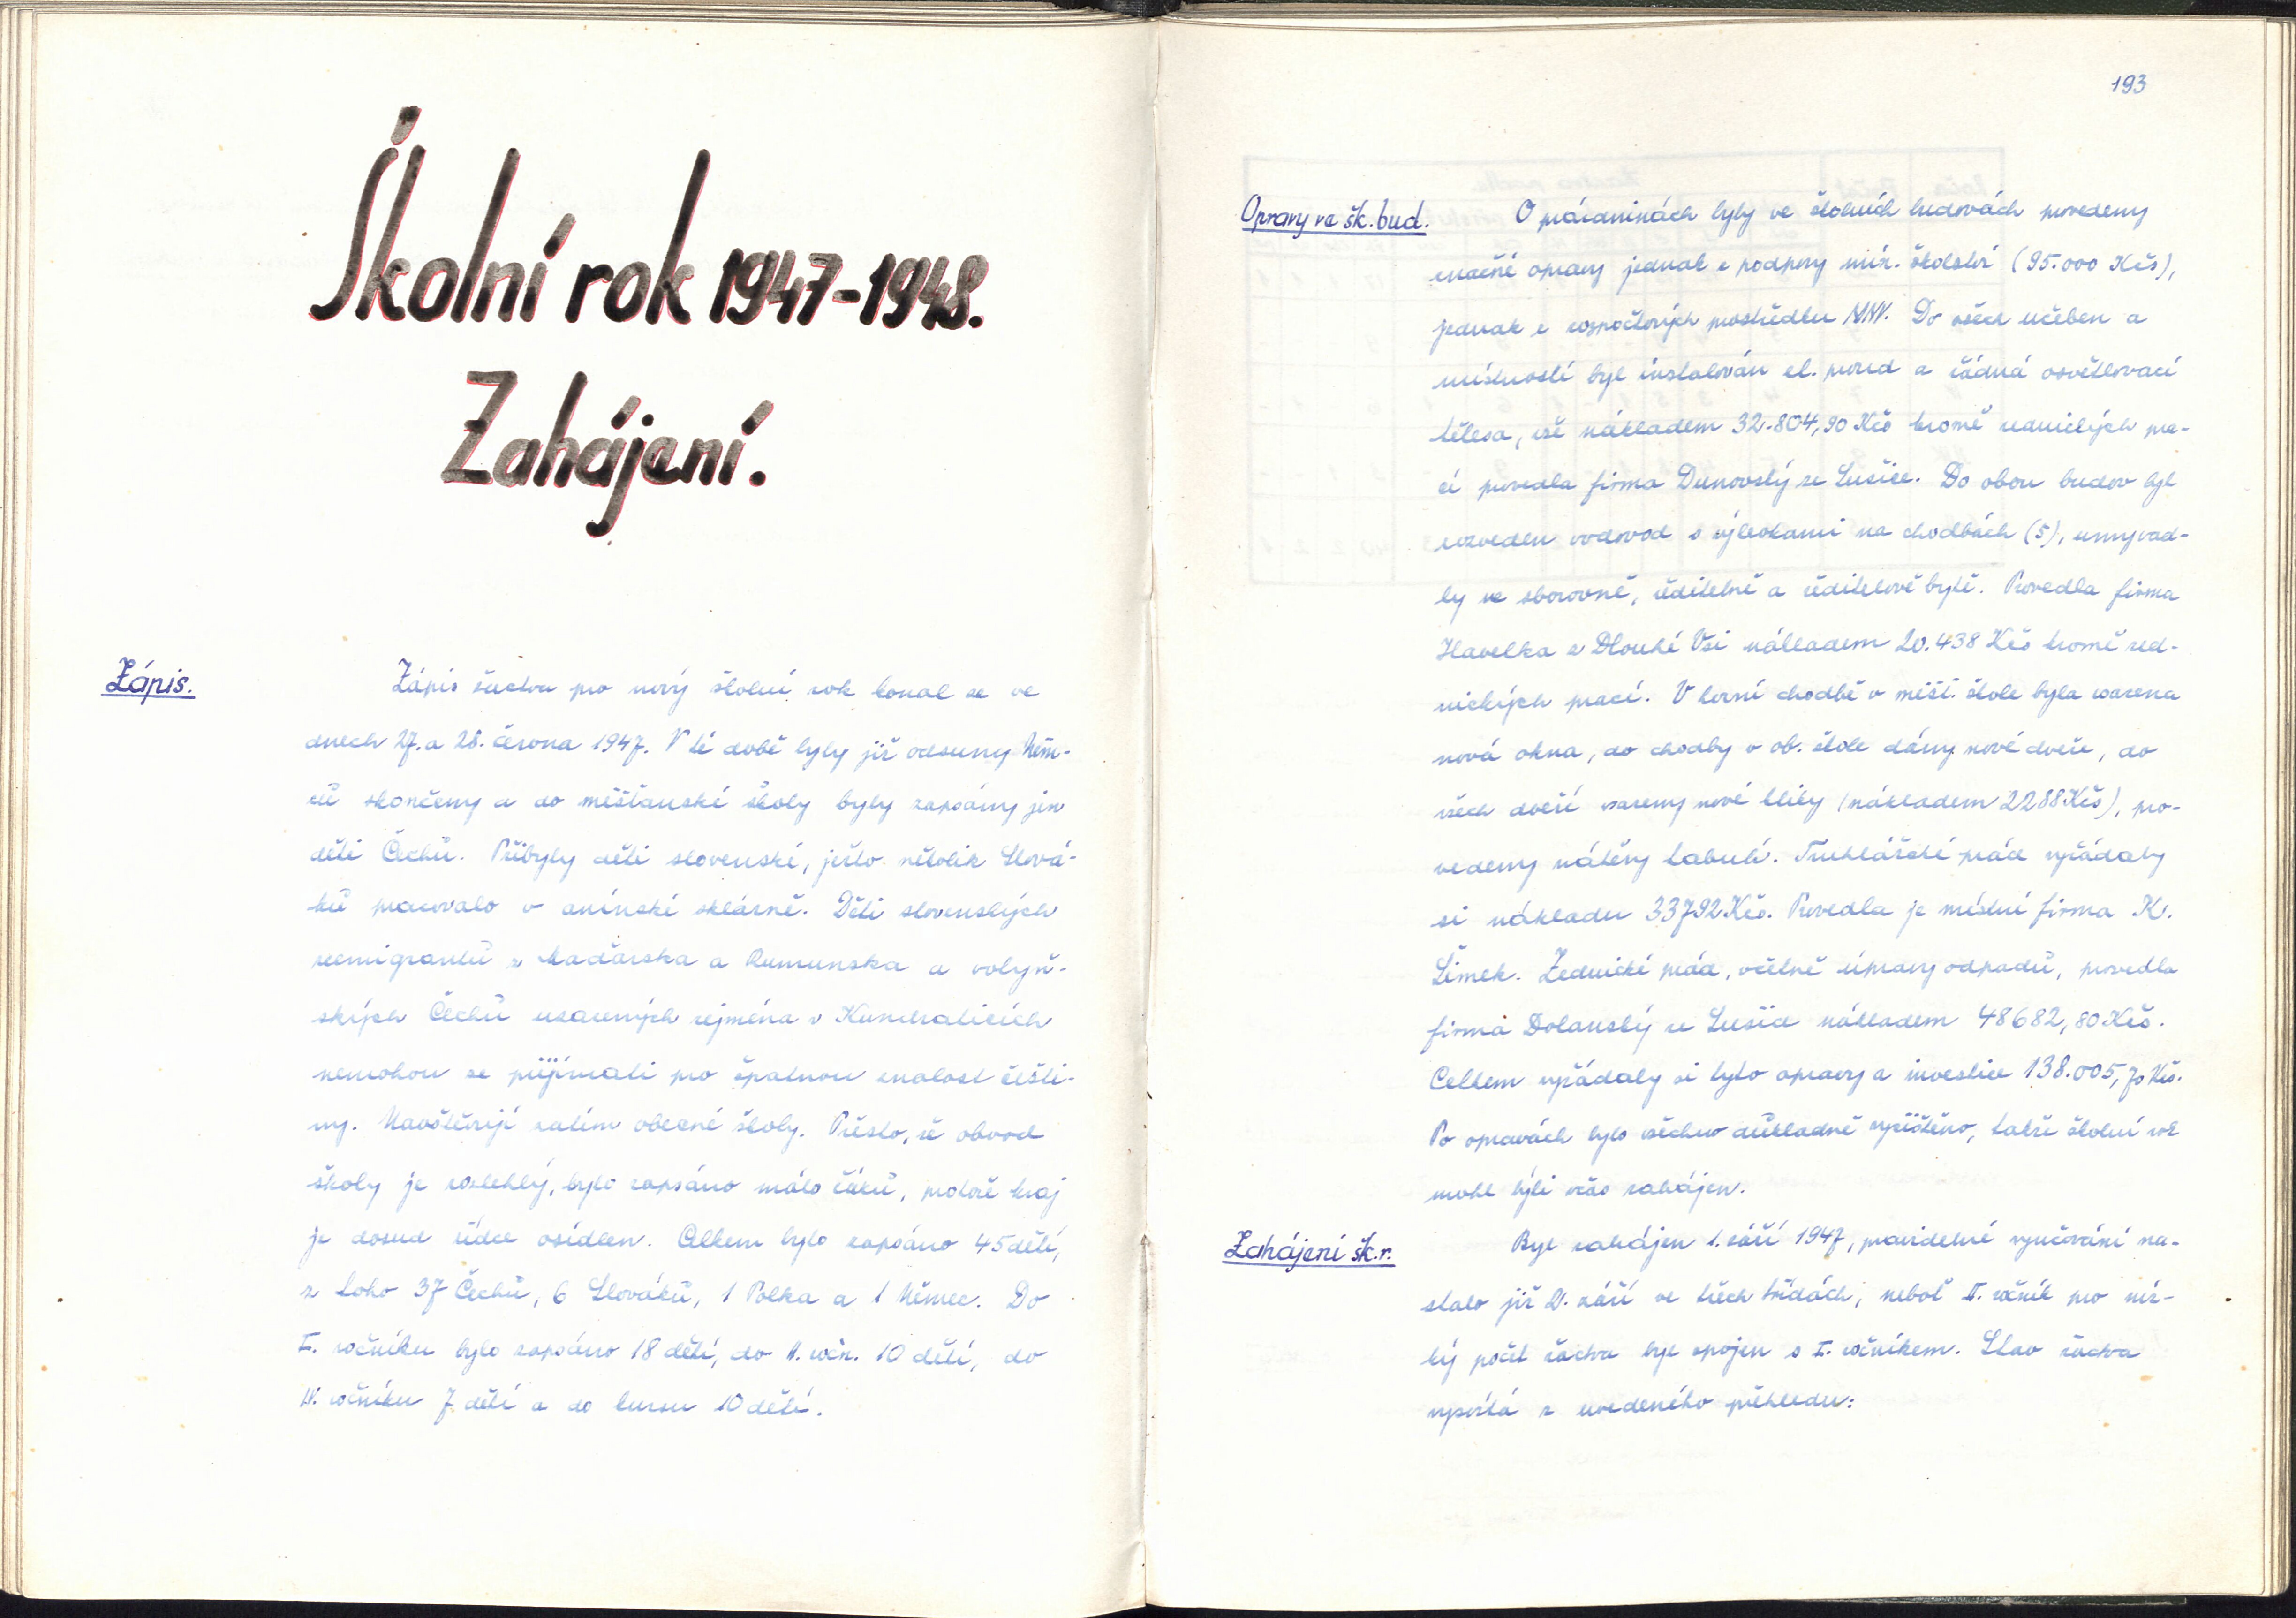 Školní rok 1947-1948.
Zahájení.
Zápis.
Zápis žactva pro nový školní rok konal se ve
dnech 27. a 28. června 1947. V té době byly již odsuny Něm-
ců skončeny a do měšťanské školy byly zapsány jen
děti Čechů. Přibyly děti slovenské, ješto několik Slová-
ků pracovalo v anínské sklárně. Děti slovenských
reemigrantů z Maďarska a Rumunska a volyň-
ských Čechů usazených zejména v Kundraticích
nemohou se přijímati pro špatnou znalost češti-
ny. Navštěvují zatím obecné školy. Přesto, že obvod
školy je rozlehlý, bylo zapsáno málo žáků, protože kraj
je dosud řídce osídlen. Celkem bylo zapsáno 45 dětí,
z toho 37 Čechů, 6 Slováků, 1 Polka a 1 Němec. Do
I. ročníku bylo zapsáno 18 dětí, do II. roč. 10 dětí, do
IV. ročníku 7 dětí a do kursu 10 dětí.
193
Opravy ve šk. bud.
O prázdninách byly ve školních budovách provedeny
značné opravy jednak z podpory min. školství (95.000 Kčs),
jednak z rozpočtových prostředků MNV. Do všech učeben a
místností byl instalován el. proud a řádná osvětlovací
tělesa, vše nákladem 32.804,90 Kčs kromě zednických pra-
cí provedla firma Dunovský ze Sušice. Do obou budov byl
rozveden vodovod s výlevkami na chodbách (5), umyvad-
ly ve sborovně, ředitelně a ředitelově bytě. Provedla firma
Havelka z Dlouhé Vsi nákladem 20.438 Kčs kromě zed-
nických prací. V horní chodbě v měšť. škole byla vsazena
nová okna, do chodby v ob. škole dány nové dveře, do
všech dveří vsazeny nové kliky (nákladem 2288 Kčs), pro-
vedeny nátěry tabulí. Truhlářské práce vyžádaly
si nákladu 33792 Kčs. Provedla je místní firma K.
Šimek. Zednické práce, včetně úpravy odpadů, provedla
firma Dolanský ze Sušice nákladem 48682,80 Kčs.
Celkem vyžádaly si tyto opravy a investice 138.005,70 Kčs.
Po opravách bylo všechno důkladně vyčištěno, takže školní rok
mohl býti včas zahájen.
Zahájení šk. r.
Byl zahájen 1. září 1947, pravidelné vyučování na-
stalo již 2. září ve třech třídách, neboť II. ročník pro níz-
ký počet žactva byl spojen s I. ročníkem. Stav žactva
vysvítá z uvedeného přehledu: